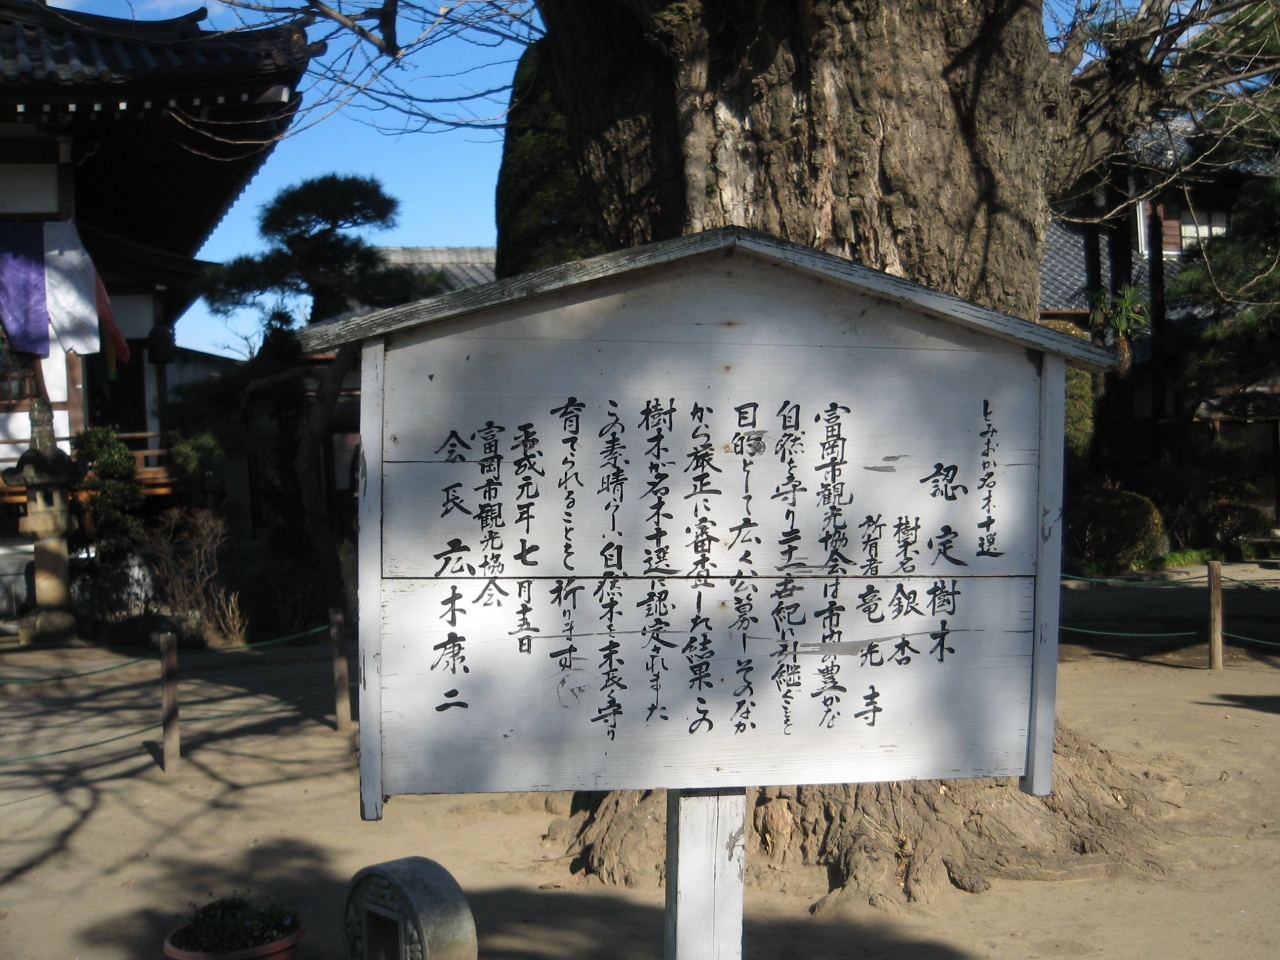 とみおか名木十選
認定樹木
樹木名 銀杏
所有者 竜光寺
富岡市観光協会は市内の豊かな
自然を守り二十一世紀に引継ぐことを
目的として広く公募しそのなか
から厳正に審査した結果この
樹木が名木十選に認定されました
この素晴しい自然木を末長く守り
育てられることを祈ります
平成元年七月十五日
富岡市観光協会
会長 広木康二